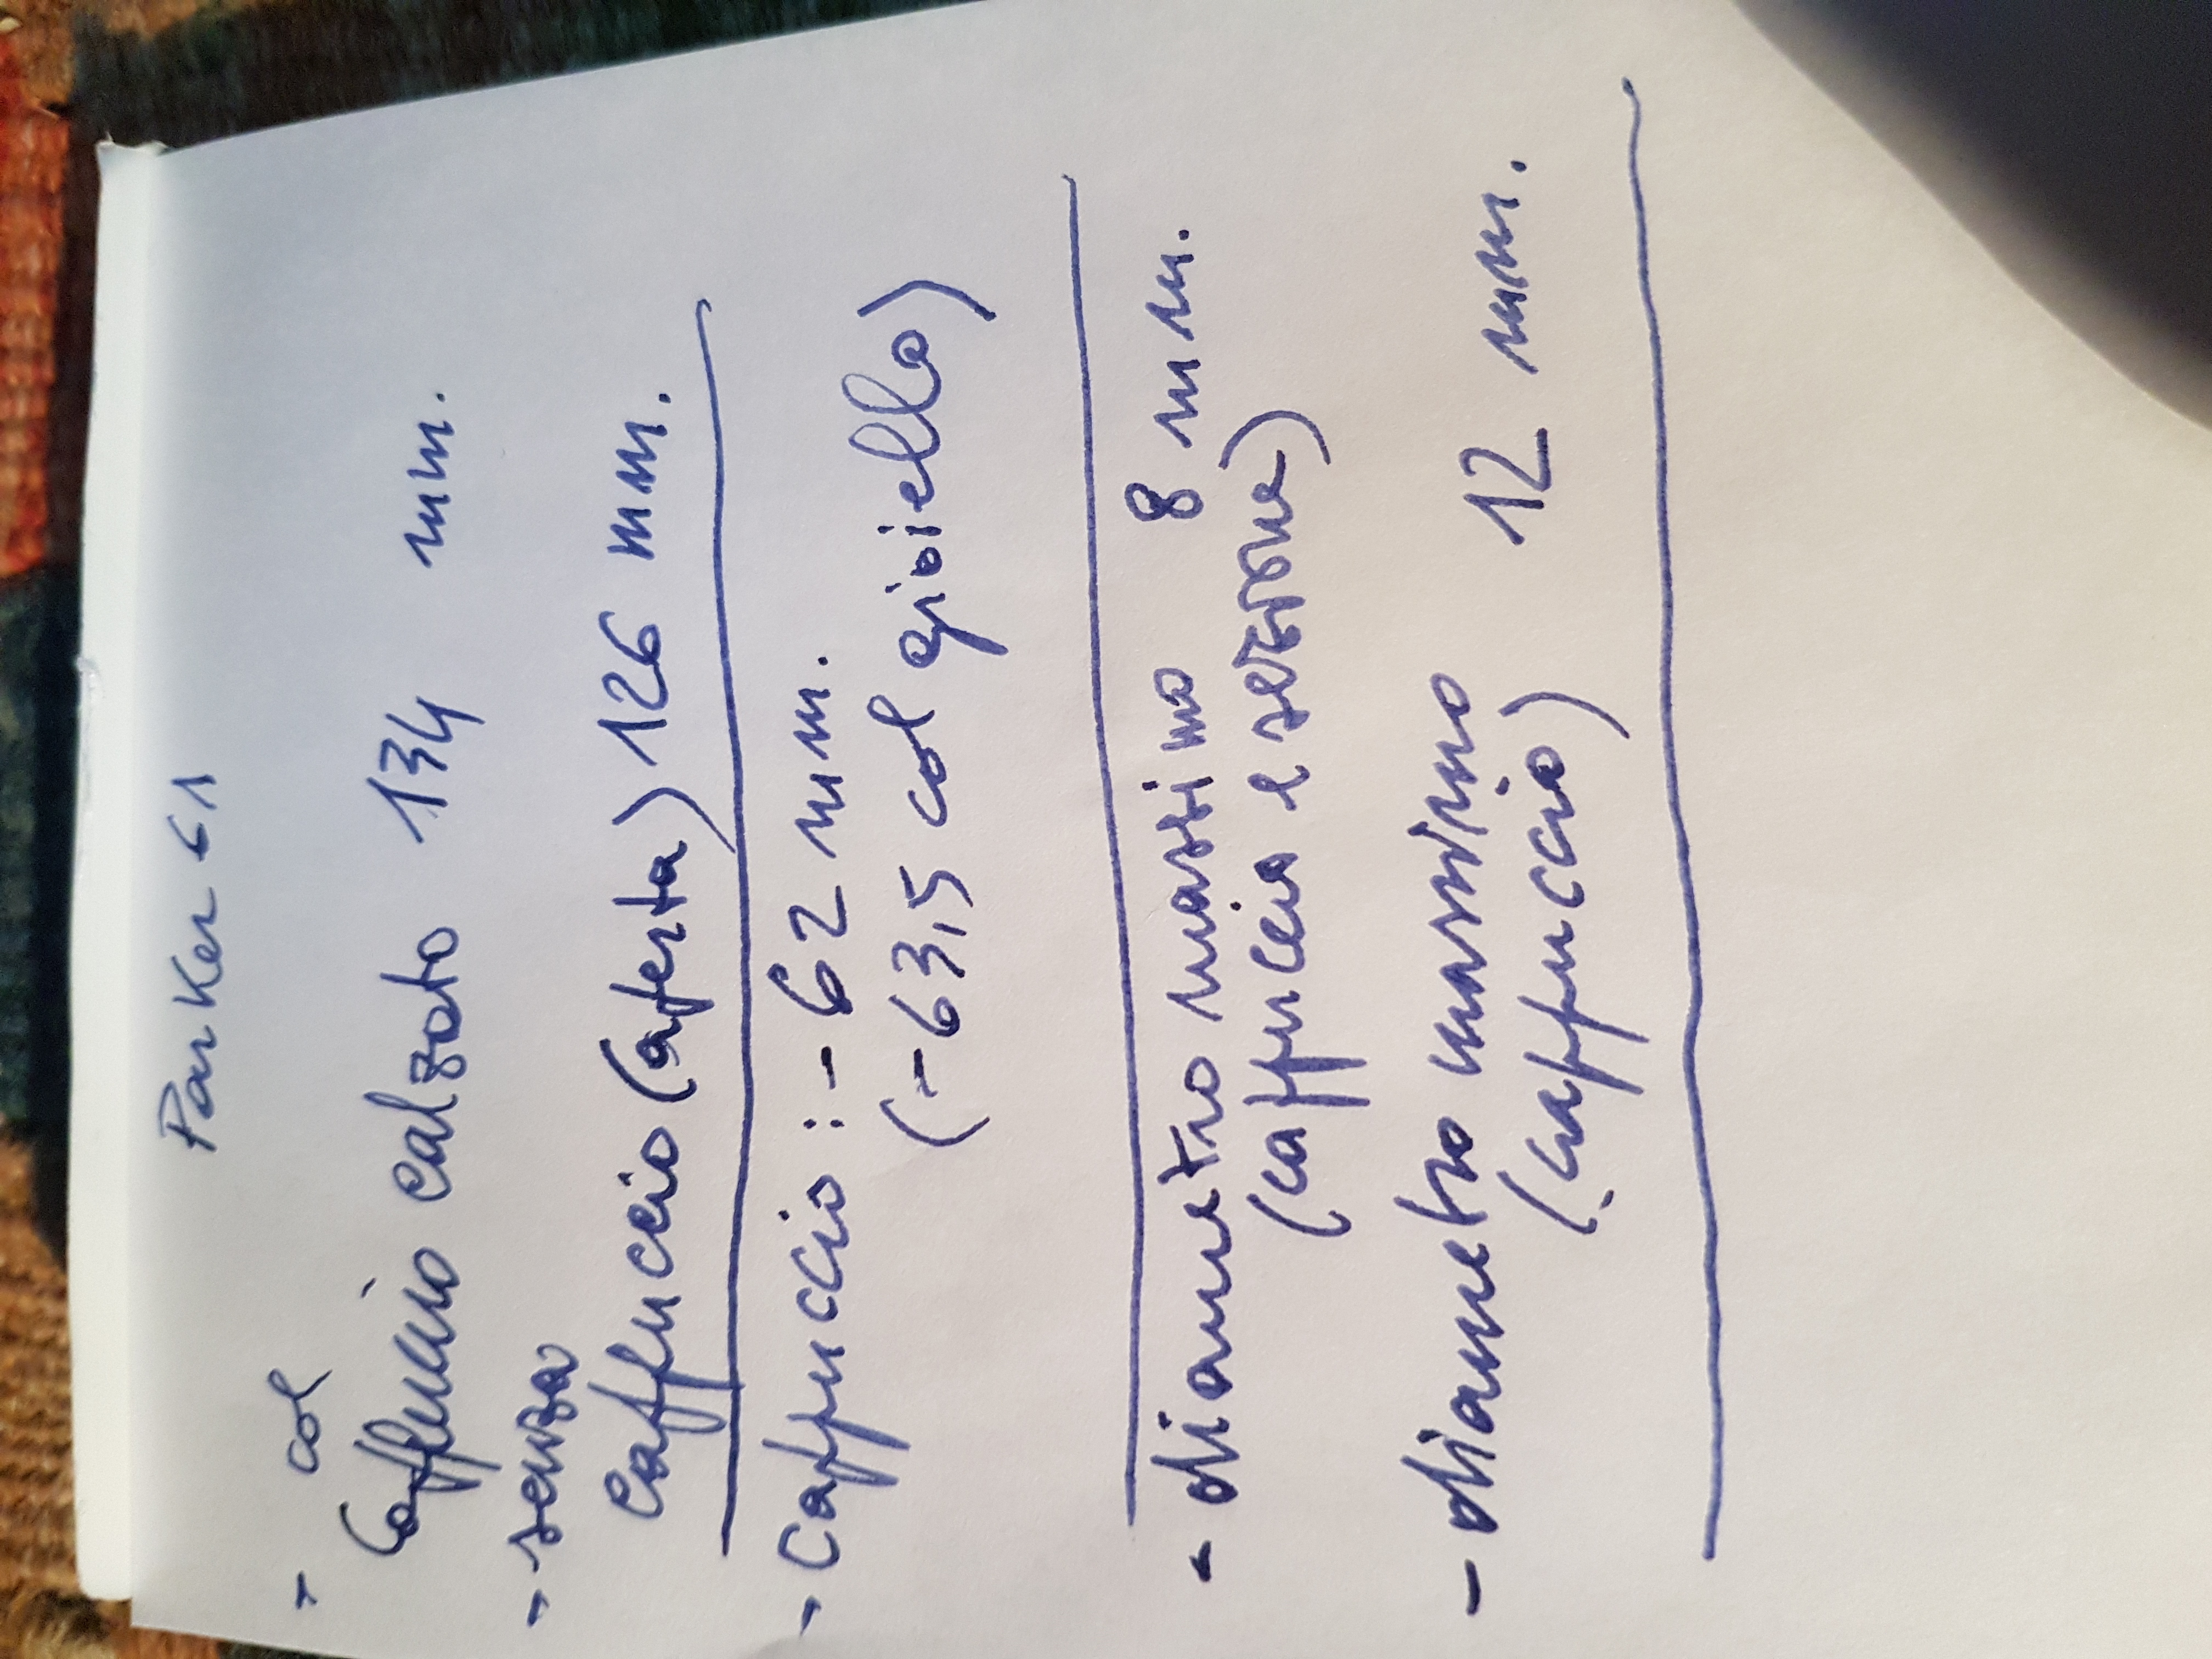 Parker 61
- col
Cappuccio calzato 134 mm.
- senza
Cappuccio (aperta) 126 mm.
- Cappuccio : - 62 mm.
(- 63,5 col gioiello)
- diametro massimo 8 mm.
(cappuccia e sezione)
- diametro massimo 12 mm.
(cappuccio)